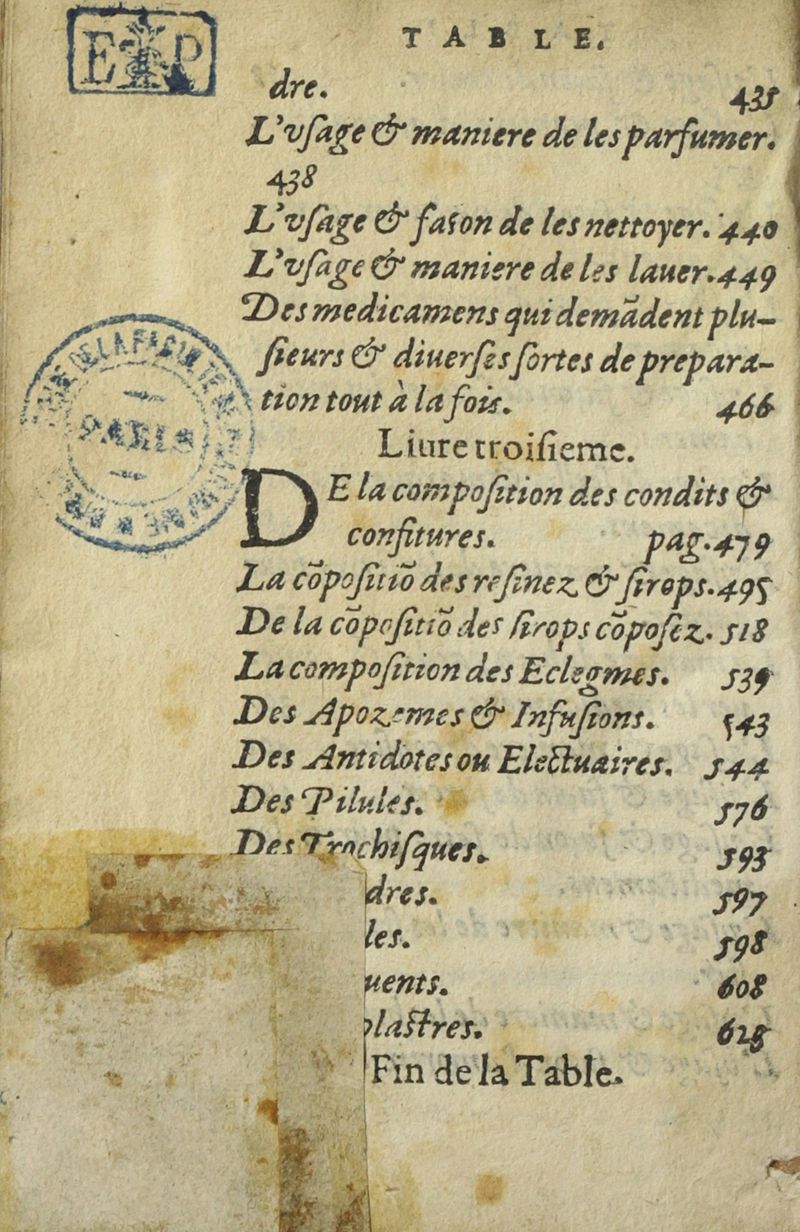 E P
TABLE.
dre. 435
L'vſage & maniere de les parfumer.
438
L'vſage & faſon de les nettoyer. 440
L'vſage & maniere de les lauer. 449
Des medicamens qui demãdent plu-
ſieurs & diuerſes ſortes de prepara-
tion tout à la fois. 466
Liure troiſieme.
DE la compoſition des condits &
confitures. pag. 479
La cõpoſitiõ des reſinez & ſirops. 495
De la cõpoſitiõ des ſirops cõpoſez. 518
La compoſition des Eclegmes. 539
Des Apozemes & Infuſions. 543
Des Antidotes ou Electuaires. 544
Des Pilules. 576
Des Trochiſques. 593
dres. 597
les. 598
uents. 608
plaſtres.
Fin de la Table.
DE LA FACULTE
PARIS